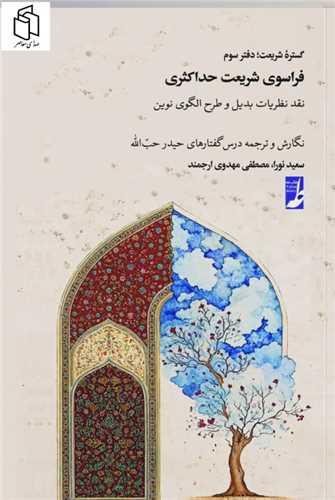 صدای معاصر
گسترهٔ شریعت؛ دفتر سوم
فراسوی شریعت حداکثری
نقد نظریات بدیل و طرح الگوی نوین
نگارش و ترجمه درس‌گفتارهای حیدر حبّ‌الله
سعید نورا، مصطفی مهدوی ارجمند